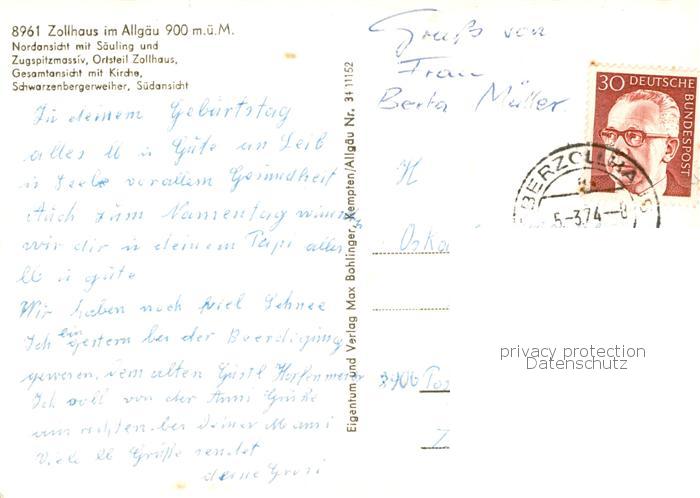 8961 Zollhaus im Allgäu 900 m.ü.M.
Nordansicht mit Säuling und
Zugspitzmassiv, Ortsteil Zollhaus,
Gesamtansicht mit Kirche,
Schwarzenbergerweiher, Südansicht
Zu deinem Geburtstag
alles lb u Gute an Leib
u Seele vor allem Gesundheit
Auch zum Namenstag wünschen
wir dir u deinem Papi alles
lb u gute
Wir haben noch viel Schnee
Ich gestern bei der Beerdigung
gewesen, vom alten Gustl
Ich soll von der Anni Grüße
ausrichten bei deiner Mami
Viele lb Grüße sendet
deine Omi
Eigentum und Verlag Max Bohlinger, Kempten/Allgäu Nr. 34 11152
Gruß von
Frau
Berta Müller
30 DEUTSCHE
BUNDESPOST
BERZOLLHAUS
-5-3.74--8
H
Oska
privacy protection
Datenschutz